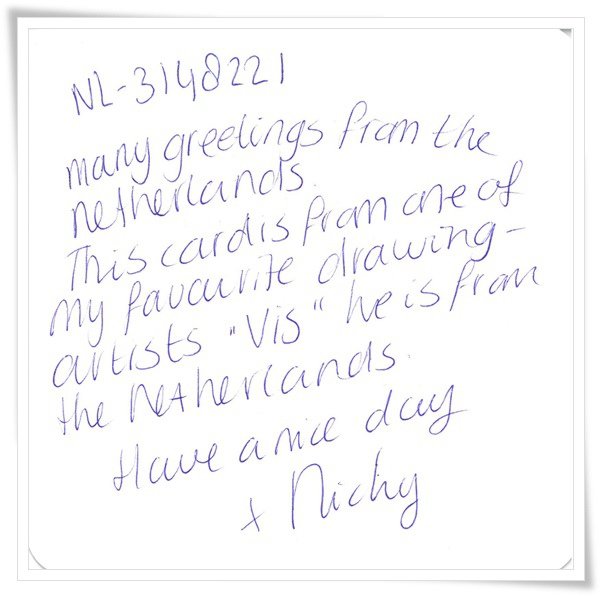 NL-3148221
many greetings from the
netherlands.
This card is from one of
my favourite drawing-
artists "Vis" he is from
the Netherlands.
Have a nice day
+ Nicky